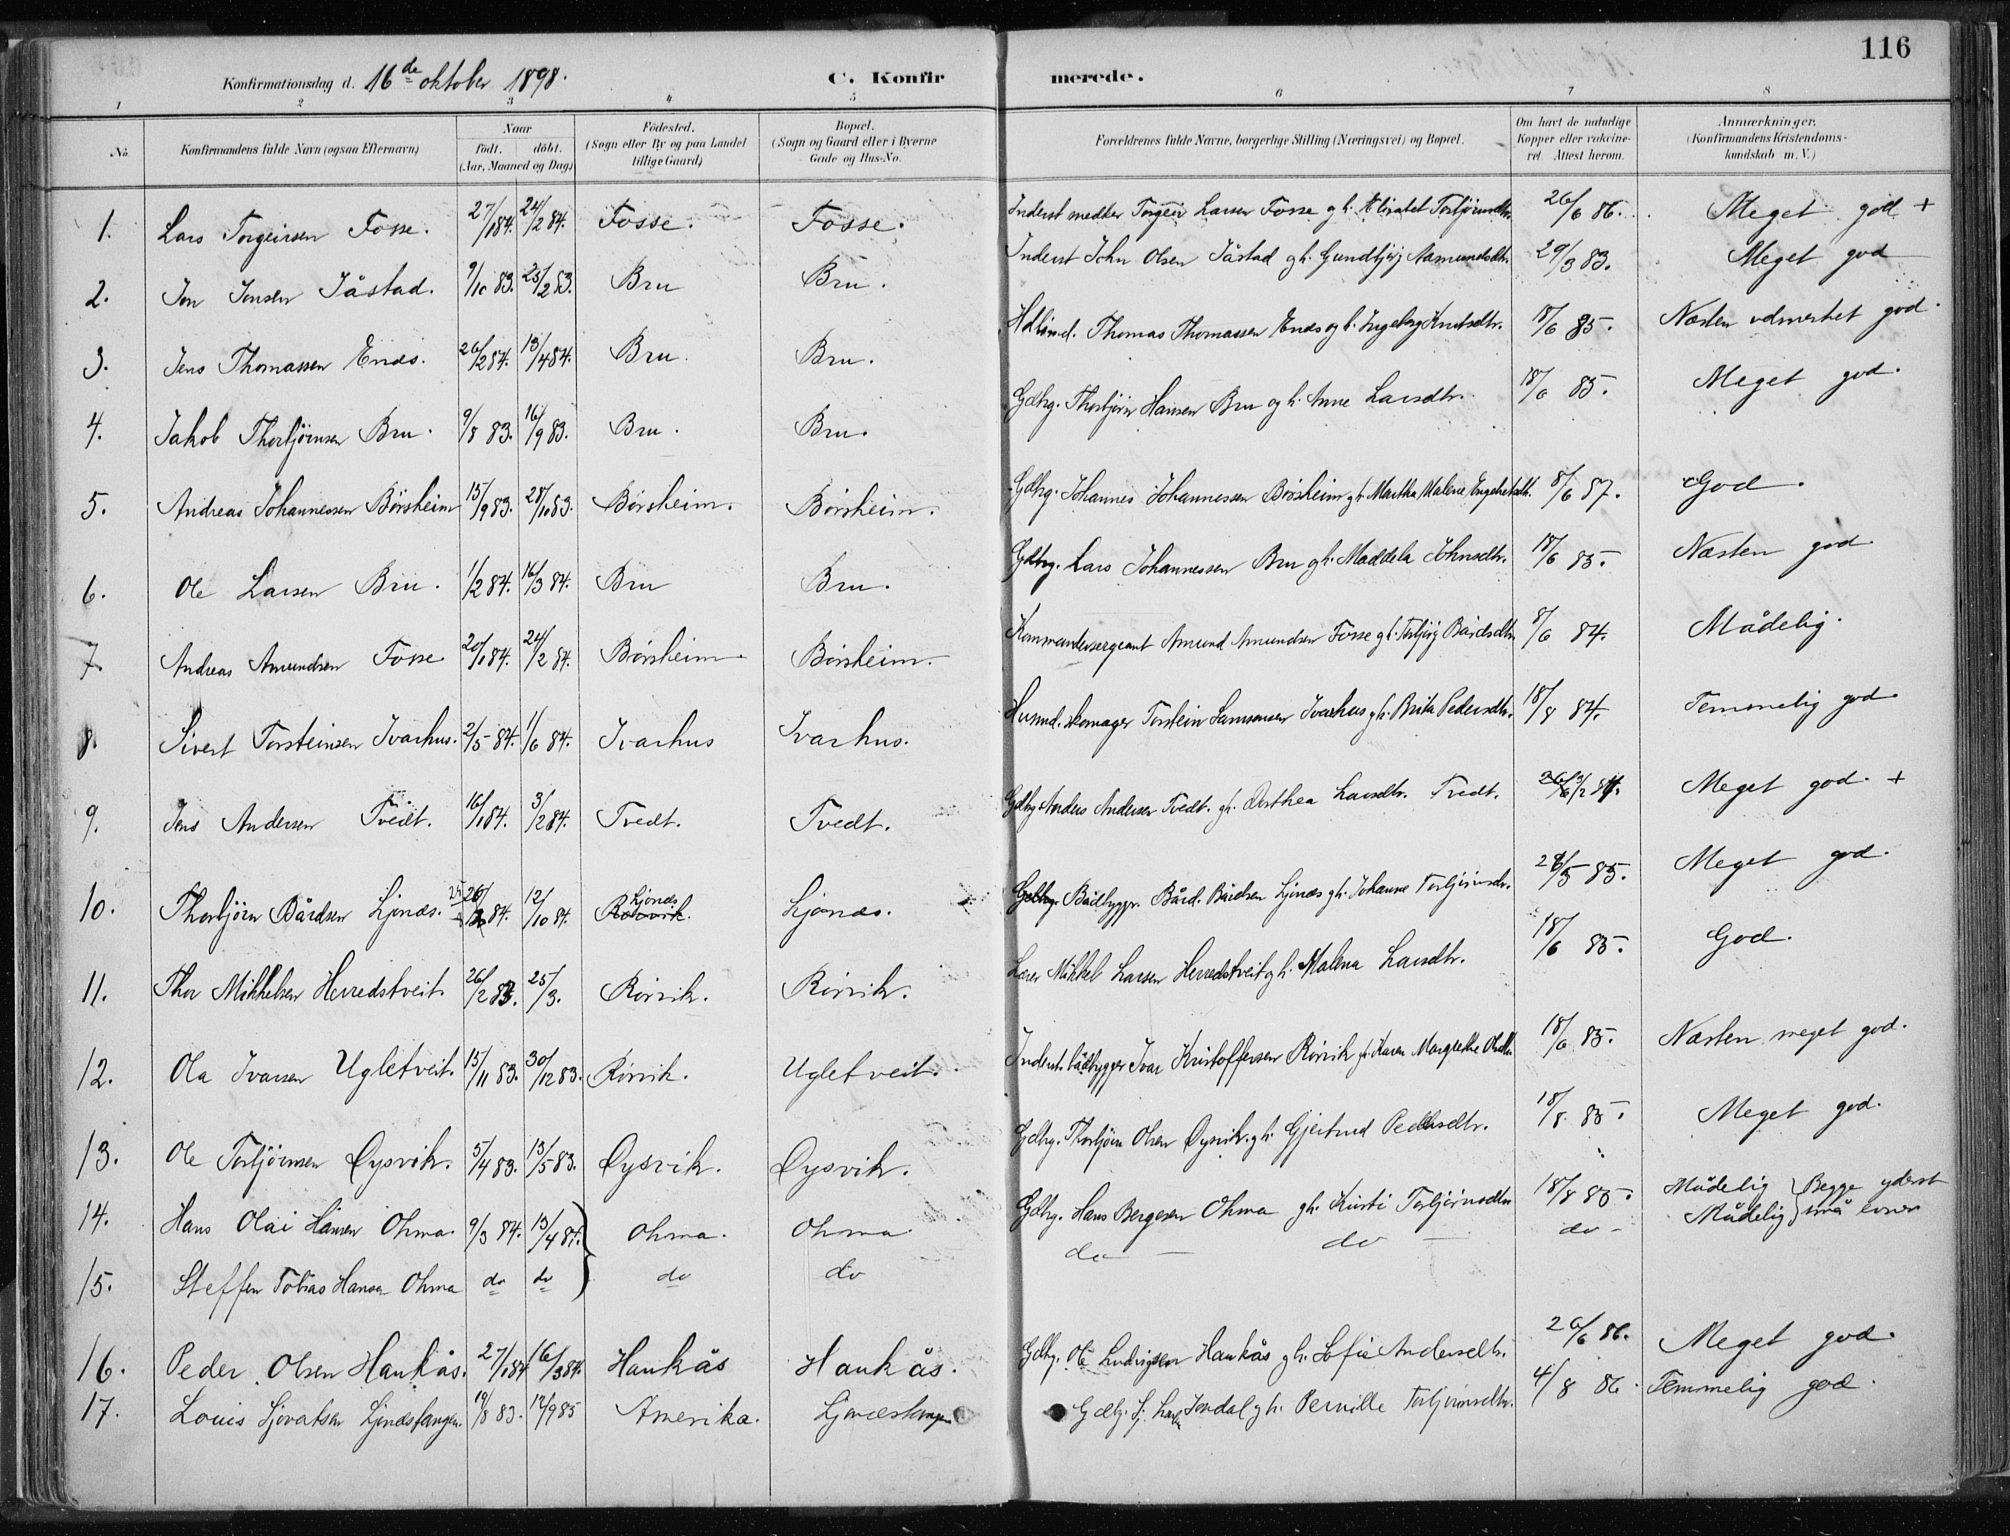 116
Konfirmationsdag d. 16de oktober 1898. C. Konfirmerede.
1 2 3 4 5 6 7 8
No. Konfirmandens fulde Navn (ogsaa Efternavn) Naar født. døbt. (Aar, Maaned og Dag) Fødested. (Sogn eller By og paa Landet tillige Gaard) Bopæl. (Sogn og Gaard eller i Byerne Gade og Hus-No. Forældrenes fulde Navne, borgerlige Stilling (Næringsvei) og Bopæl. Om havt de naturlige Kopper eller vaccineret Attest herom. Anmærkninger. (Konfirmandens Kristendomskundskab m. V.)
1. Lars Torgeirsen Fosse. 27/1 84. 24/2 84. Fosse. Fosse. Inderst Torgeir Larsen Fosse gh. Torbjørnsdtr. 26/6 86. Meget god +
2. Jon Jonsen Jåstad. 9/10 83. 25/2 83. Bru Bru. Inderst John Olsen Jåstad gh. Gundbjørg Aamundsdtr. 29/3 83. Meget god
3. Jens Thomassen Enæs. 26/2 84. 13/4 84. Bru. Bru. Thomas Thomassen Enæs gh. Ingeborg Knutsdtr. 18/6 85. Næsten udmerket god.
4. Jakob Thorbjørnsen Bru. 9/8 83. 16/9 83. Bru. Bru. Gdbrg. Thorbjørn Hansen Bru gh. Anne Larsdtr. 18/6 85. Meget god.
5. Andreas Johannessen Børsheim 15/9 83. 28/10 83. Børsheim. Børsheim. Gdbrg. Johannes Johannessen Børsheim gh. Martha Malene Engelretsdtr. 8/6 87. God.
6. Ole Larsen Bru. 1/2 84. 16/3 84. Bru Bru. Gdbrg. Lars Johannessen Bru gh. Maddela Johnsdtr. 18/6 85. Næsten god.
7. Andreas Amundsen Fosse 20/1 84. 24/2 84. Børsheim. Børsheim. Kommandersergeant Amund Amundsen Fosse gh. Torbjørg Bårdsdtr. 8/6 84. Mådelig.
8. Sivert Torsteinsen Ivarhus. 2/5 84. 1/6 84. Ivarhus Ivarhus. Husmd. skomager Torstein Samsonsen Ivarhus gh. Brita Pedersdtr. 18/8 84. Temmelig god
9. Jens Andersen Tvedt. 16/1 84. 3/2 84. Tvedt. Tvedt. Gdbrg. Anders Andersen Tvedt. gh. Dorthea Larsdtr. Tvedt. Meget god. +
10. Thorbjørn Bårdsen Ljonæs. 12/10 84. Ljonæs Rørvik. Ljonæs. Gdbrg. Bådbyggr. Bård. Bårdsen Ljonæs gh. Johanne Torbjørnsdr. 28/5 85. Meget god.
11. Thor Mikkelsen Herredstveit. 26/2 83. 25/3. Rørvik. Rørvik. Lærer Mikkel Larsen Herredstveit gh. Malena Larsdtr. 18/6 85. God.
12. Ola Ivarsen Ugletveit. 15/11 83. 30/12 83. Rørvik. Ugletveit. Inderst. bådbygger Ivar Kristoffersen Rørvik gh. Karen Margrethe Olsdtr. 18/6 85. Næsten meget god.
13. Ole Torbjørnsen Øysvik. 5/4 83. 13/5 83. Øysvik. Øysvik. Gdbrg. Thorbjørn Olsen Øysvik. gh. Gjertrud Pedersdtr. 18/8 85. Meget god.
14. Hans Olai Hansen Ohma. 9/3 84. 13/4 84. Ohma. Ohma Gdbrg. Hans Bergesen Ohma gh. Kirsti Torbjørnsdtr 18/8 85. Mådelig } Begge yderst
15. Steffen Tobias Hansen Ohma do do do do do do do Mådelig } små evner
16. Peder Olsen Haukås. 27/1 84 16/3 84. Haukås Haukås. Gdbrg. Ole Ludvigsen Haukås gh. Sofie Andersdtr. 26/6 86. Meget god.
17. Louis Sjovatsen Ljonæstangen. 19/8 83. 14/9 85 Amerika. Ljonæstangen Gdbrg. Sj. Larsen Jondal gh. Pernille Torbjørnsdtr. 4/8 86. Temmelig god.